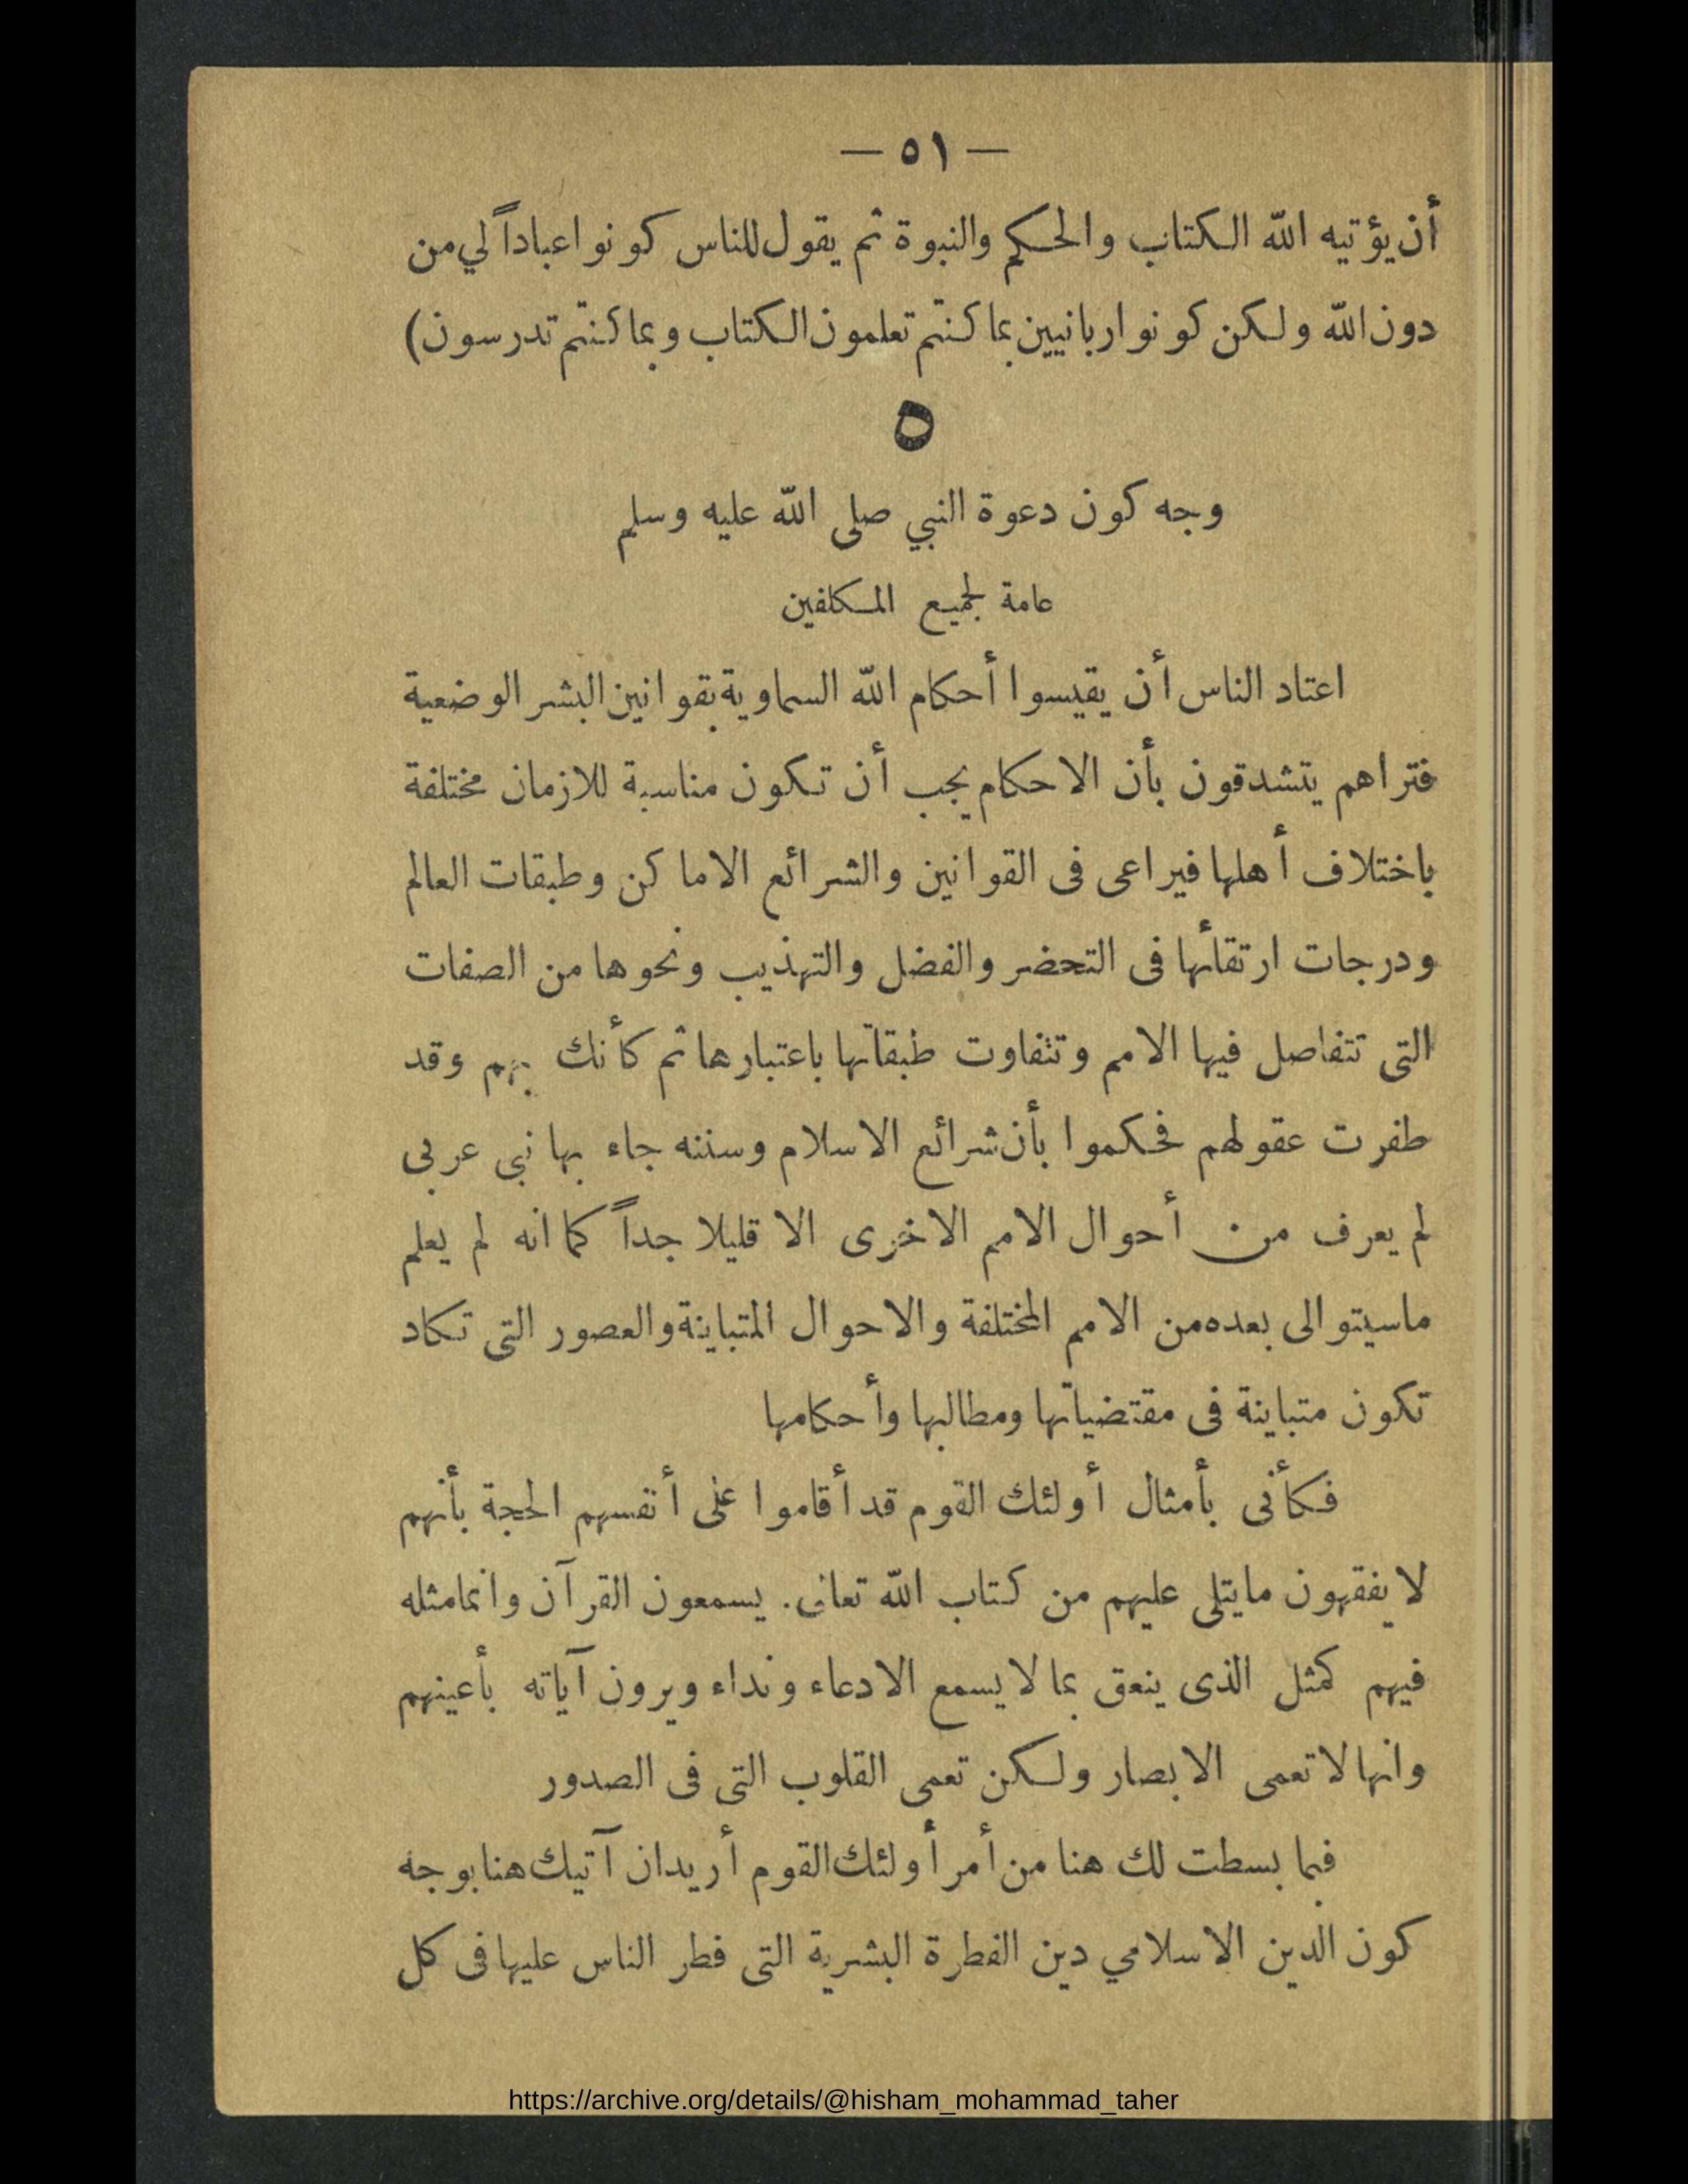 — ٥١ —
أن يؤتيه الله الكتاب والحكم والنبوة ثم يقول للناس كونوا عباداً لي من
دون الله ولكن كونوا ربانيين بما كنتم تعلمون الكتاب وبما كنتم تدرسون)
٥
وجه كون دعوة النبي صلى الله عليه وسلم
عامة لجميع المكلفين
اعتاد الناس أن يقيسوا أحكام الله السماوية بقوانين البشر الوضعية
فتراهم يتشدقون بأن الاحكام يجب أن تكون مناسبة للازمان مختلفة
باختلاف أهلها فيراعى فى القوانين والشرائع الاماكن وطبقات العالم
ودرجات ارتقائها فى التحضر والفضل والتهذيب ونحوها من الصفات
التى تتفاصل فيها الامم وتتفاوت طبقاتها باعتبارها ثم كأنك بهم وقد
طفرت عقولهم فحكموا بأن شرائع الاسلام وسننه جاء بها نبى عربى
لم يعرف من أحوال الامم الاخرى الا قليلا جداً كما انه لم يعلم
ماسيتوالى بعده من الامم المختلفة والاحوال المتباينة والعصور التى تكاد
تكون متباينة فى مقتضياتها ومطالبها وأحكامها
فكأنى بأمثال أولئك القوم قد أقاموا على أنفسهم الحجة بأنهم
لا يفقهون مايتلى عليهم من كتاب الله تعالى. يسمعون القرآن وانمامثله
فيهم كمثل الذى ينعق بما لا يسمع الا دعاء ونداء ويرون آياته بأعينهم
وانها لا تعمى الابصار ولكن تعمى القلوب التى فى الصدور
فبما بسطت لك هنا من أمر أولئك القوم أريد ان آتيك هنا بوجه
كون الدين الاسلامي دين الفطرة البشرية التى فطر الناس عليها فى كل
https://archive.org/details/@hisham_mohammad_taher